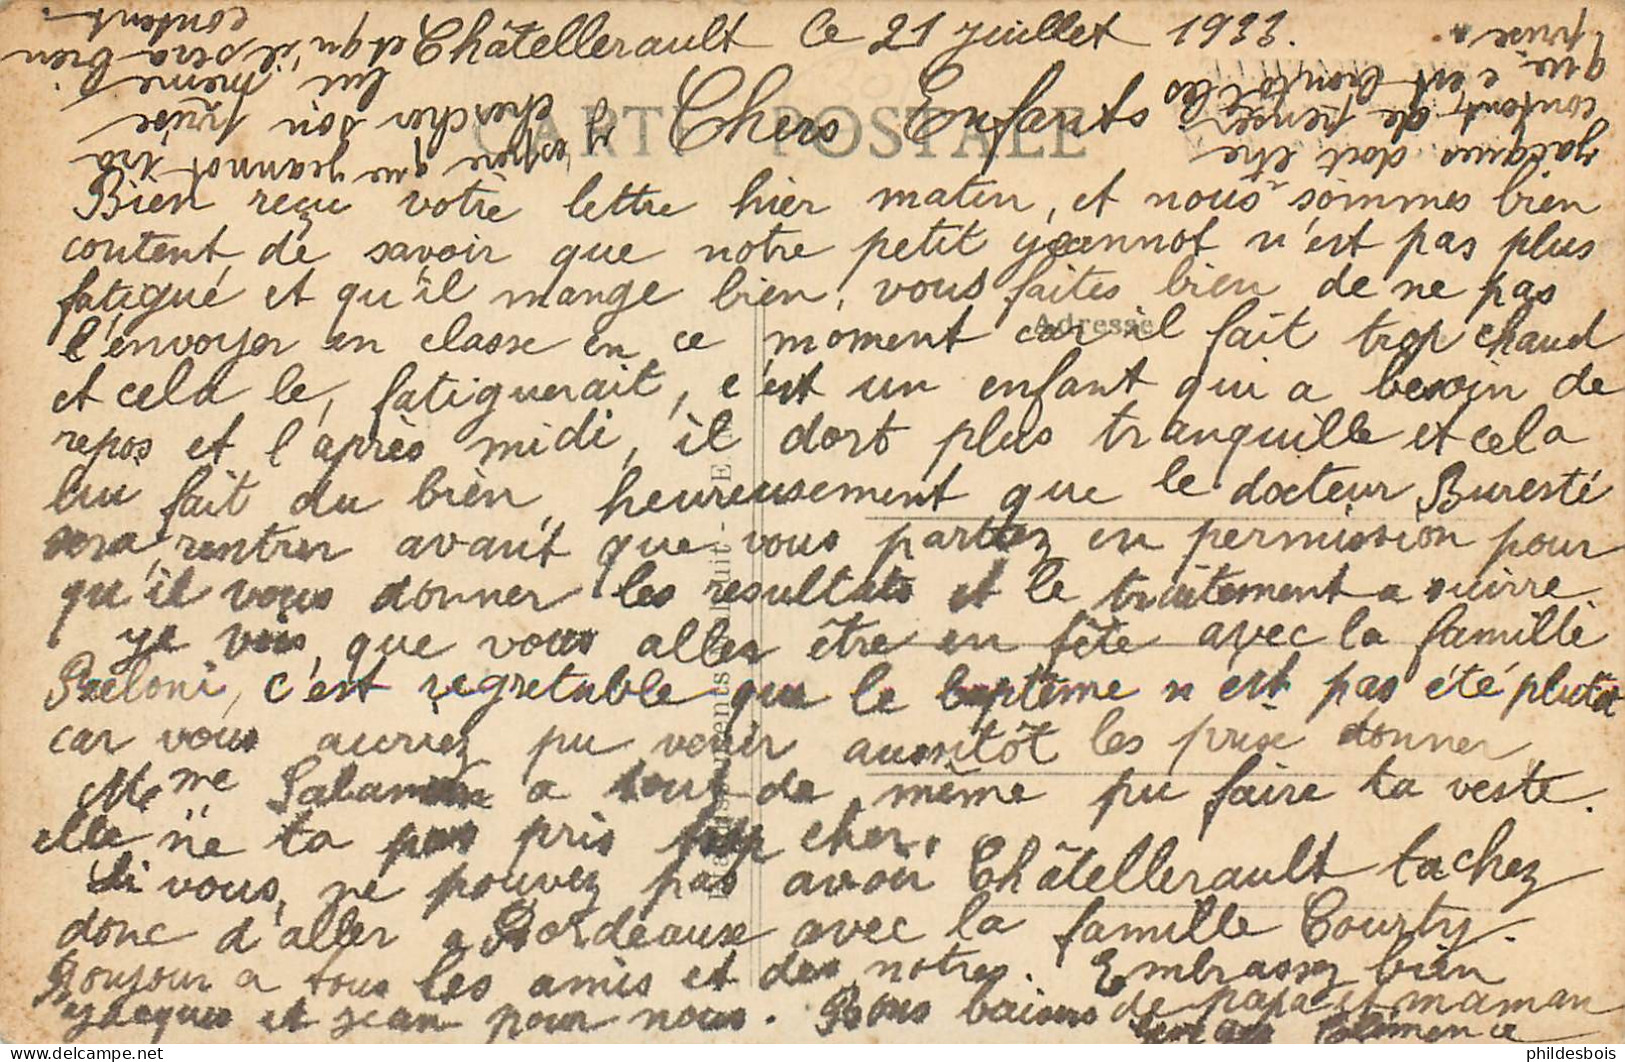 Châtellerault le 21 Juillet 1933.
CARTE POSTALE
Chers Enfants
Bien reçu votre lettre hier matin, et nous sommes bien
content de savoir que notre petit yeannot n'est pas plus
fatigué et qu'il mange bien, vous faites bien de ne pas
Adresse
l'envoyer en classe en ce moment car il fait trop chaud
et cela le fatiguerait, c'est un enfant qui a besoin de
repos et l'après midi, il dort plus tranquille et cela
lui fait du bien, heureusement que le docteur Buresté
sera rentrer avant que vous partez en permission pour
qu'il vous donner les resultats et le traitement a suivre.
ye vois, que vous aller être en fête avec la famille
c'est regretable que le baptême n'est pas été plutot
car vous auriez pu venir aussitôt les prix donner
Mme a tout de même pu faire ta veste.
elle ne ta pas pris trop cher.
Si vous, ne pouvez pas avoir Châtellerault tachez
donc d'aller a Bordeaux avec la famille Courty.
Bonjour a tous les amis et des notres. Embrassez bien
yacques et jean pour nous. Bons baisers de papa et maman
Clémence
y'espère que yeannot ira
chercher son prise
lui même
et qu'il sera bien
content.
yacques doit être
content, de penser
que c'est bientot les
prises.
phildesbois